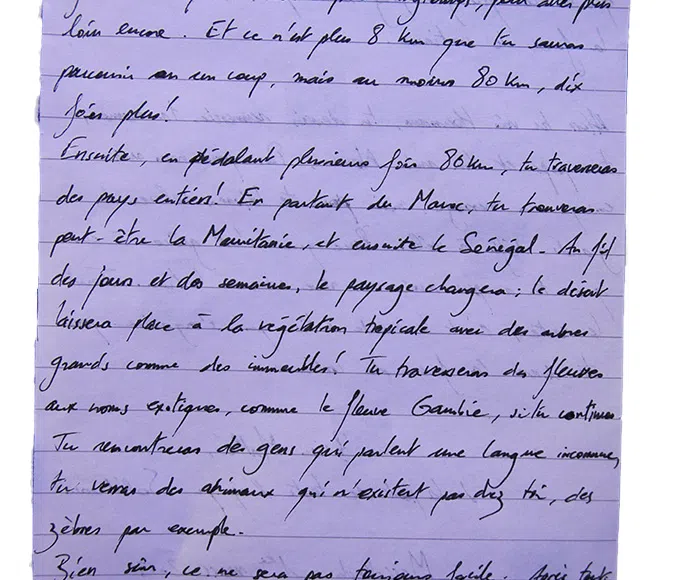 plus
loin encore. Et ce n'est plus 8 km que tu sauras
parcourir en un coup, mais au moins 80 km, dix
fois plus!
Ensuite, en pédalant plusieurs fois 80 km, tu traverseras
des pays entiers! En partant du Maroc, tu trouveras
peut-être la Mauritanie, et ensuite le Sénégal. Au fil
des jours et des semaines, le paysage changera; le désert
laissera place à la végétation tropicale avec des arbres
grands comme des immeubles! Tu traverseras des fleuves
aux noms exotiques, comme le fleuve Gambie, si tu continues
Tu rencontreras des gens qui parlent une langue inconnue,
tu verras des animaux qui n'existent pas chez toi, des
zèbres par exemple.
Bien sûr, ce ne sera pas toujours facile. Après tout